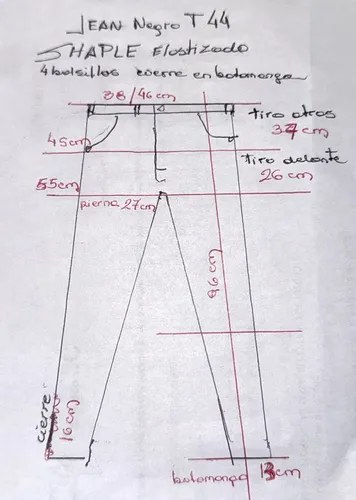 JEAN Negro T 44
SHAPLE Elastizado
4 bolsillos cierre en botamanga
38/46cm
tiro atras
37cm
45cm
tiro delante
26cm
55cm
pierna 27cm
96cm
cierre
16cm
botamanga 13cm